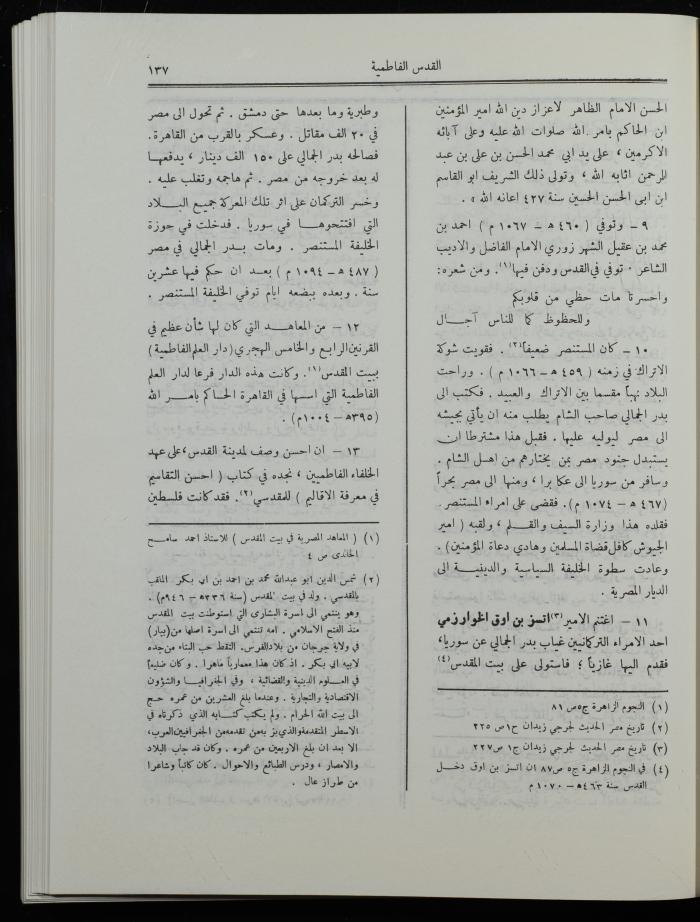 القدس الفاطمية
١٣٧
الحسن الامام الظاهر لاعزاز دين الله امير المؤمنين
ابن الحاكم بامر الله صلوات الله عليه وعلى آبائه
الاكرمين ، على يد ابي محمد الحسن بن علي بن عبد
الرحمن اثابه الله ، وتولى ذلك الشريف ابو القاسم
ابن ابى الحسن الحسين سنة ٤٢٧ اعانه الله » .
٩ – وتوفي ( ٤٦٠ هـ – ١٠٦٧ م ) احمد بن
محمد بن عقيل الشهر زوري الامام الفاضل والاديب
الشاعر . توفي في القدس ودفن فيها(١). ومن شعره:
واحسرتا مات حظي من قلوبكم
وللحظوظ كما للناس آجال
١٠ – كان المستنصر ضعيفاً(٢) . فقويت شوكة
الاتراك في زمنه ( ٤٥٩ هـ – ١٠٦٦ م ) . وراحت
البلاد نهباً مقسما بين الاتراك والعبيد . فكتب الى
بدر الجمالي صاحب الشام يطلب منه ان يأتي بجيشه
الى مصر ليوليه عليها . فقبل هذا مشترطا ان
يستبدل جنود مصر بمن يختارهم من اهل الشام .
وسافر من سوريا الى عكا برا ، ومنها الى مصر بحراً
(٤٦٧ هـ – ١٠٧٤ م). فقضى على امراء المستنصر .
فقلده هذا وزارة السيف والقلم ، ولقبه ( امير
الجيوش كافل قضاة المسلمين وهادي دعاة المؤمنين) .
وعادت سطوة الخليفة السياسية والدينية الى
الديار المصرية .
١١ – اغتنم الامير(٣) اتسز بن اوق الخوارزمي
احد الامراء التركمانيين غياب بدر الجمالي عن سوريا،
فقدم اليها غازياً ؛ فاستولى على بيت المقدس(٤)
(١) النجوم الزاهرة ج٥ص ٨١
(٢) تاريخ مصر الحديث لجرجي زيدان ج١ص ٢٢٥
(٣) تاريخ مصر الحديث لجرجي زيدان ج١ ص٢٢٧
(٤) في النجوم الزاهرة ج٥ ص٨٧ ان اتسز بن اوق دخل
القدس سنة ٤٦٣هـ – ١٠٧٠ م
وطبرية وما بعدها حتى دمشق . ثم تحول الى مصر
في ٢٠ الف مقاتل . وعسكر بالقرب من القاهرة.
فصالحه بدر الجمالي على ١٥٠ الف دينار ، يدفعها
له بعد خروجه من مصر . ثم هاجمه وتغلب عليه .
وخسر التركمان على اثر تلك المعركة جميع البلاد
التي افتتحوها في سوريا . فدخلت في حوزة
الخليفة المستنصر . ومات بدر الجمالي في مصر
( ٤٨٧ هـ – ١٠٩٤ م ) بعد ان حكم فيها عشرين
سنة . وبعده ببضعه ايام توفي الخليفة المستنصر .
١٢ – من المعاهد التي كان لها شأن عظيم في
القرنين الرابع والخامس الهجري (دار العلم الفاطمية)
ببيت المقدس(١). وكانت هذه الدار فرعا لدار العلم
الفاطمية التي اسسها في القاهرة الحاكم بامر الله
(٣٩٥هـ – ١٠٠٤م) .
١٣ – ان احسن وصف لمدينة القدس، على عهد
الخلفاء الفاطميين ، نجده في كتاب ( احسن التقاسيم
في معرفة الاقاليم ) للمقدسي(٢). فقد كانت فلسطين
(١) ( المعاهد المصرية في بيت المقدس ) للاستاذ احمد سامح
الخالدى ص ٤
(٢) شمس الدين ابو عبدالله محمد بن احمد بن ابي بكر الملقب
بالمقدسي . ولد في بيت المقدس (سنة ٣٣٦هـ – ٩٤٦م) .
وهو ينتمي الى اسرة البشارى التي استوطنت بيت المقدس
منذ الفتح الاسلامي . امه تنتمي الى اسرة اصلها من (بيار)
في ولاية جرجان من بلاد الفرس. التقط حب البناء من جده
لابيه ابي بكر . اذ كان هذا معمارياً ماهرا . وكان ضليعاً
في العلوم الدينية والقضائية ، وفي الجغرافيا والشؤون
الاقتصادية والتجارية . وعندما بلغ العشرين من عمره حج
الى بيت الله الحرام . ولم يكتب كتابه الذي ذكرناه في
الاسطر المتقدمة والذي بز به من تقدمه من الجغرافيين العرب،
الا بعد ان بلغ الاربعين من عمره . وكان قد جاب البلاد
والامصار ، ودرس الطبائع والاحوال . كان كاتباً وشاعرا
من طراز عال .